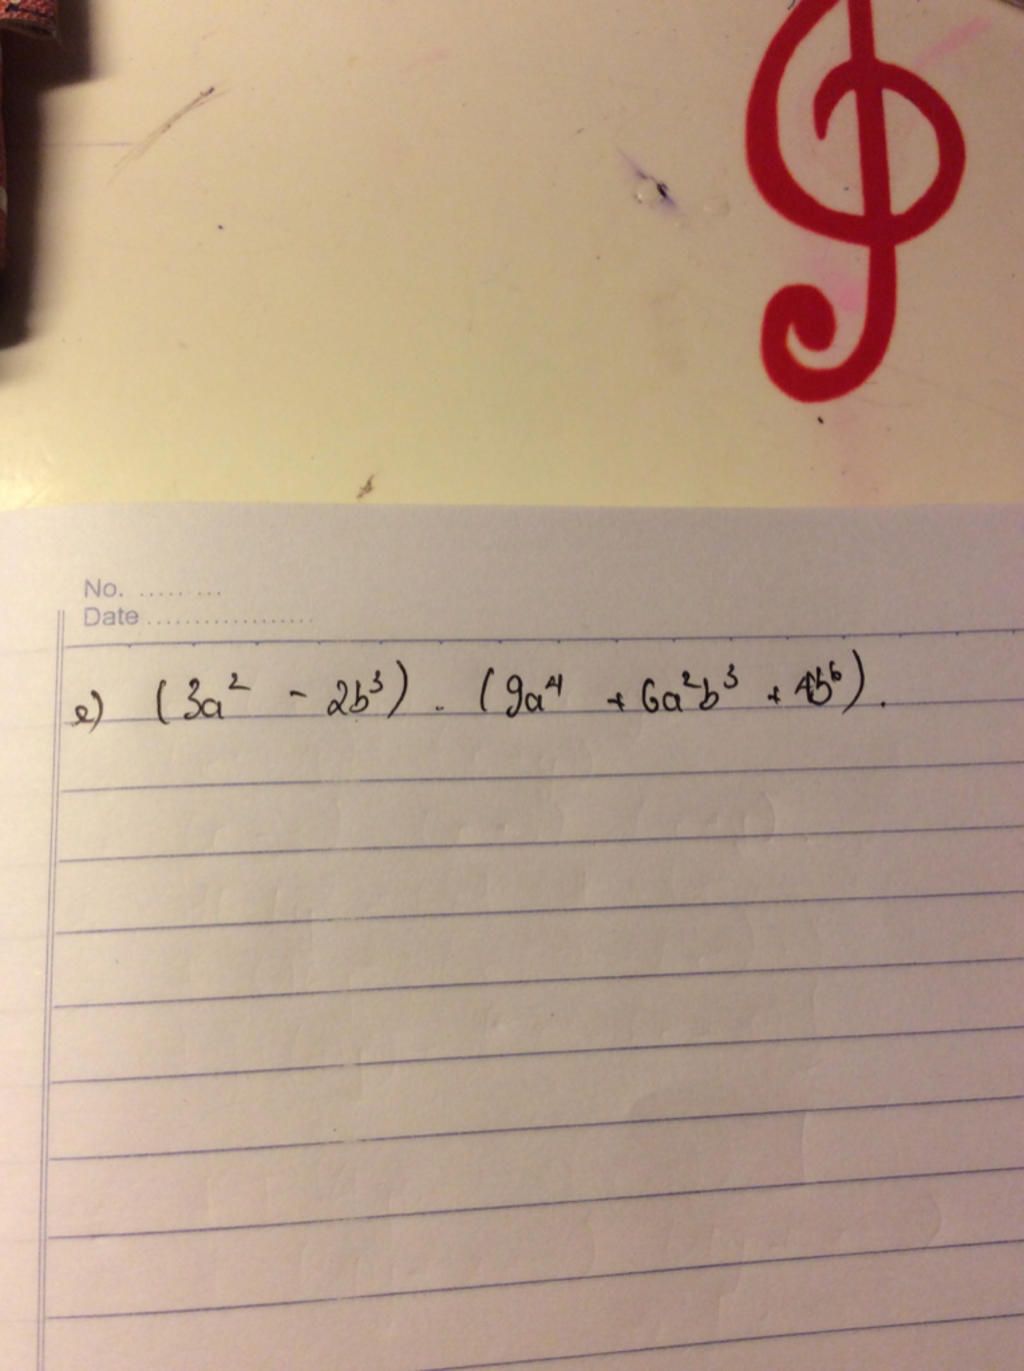 No. .........
Date ..................
e) (3a² - 2b³) . (9a⁴ + 6a²b³ + 4b⁶).